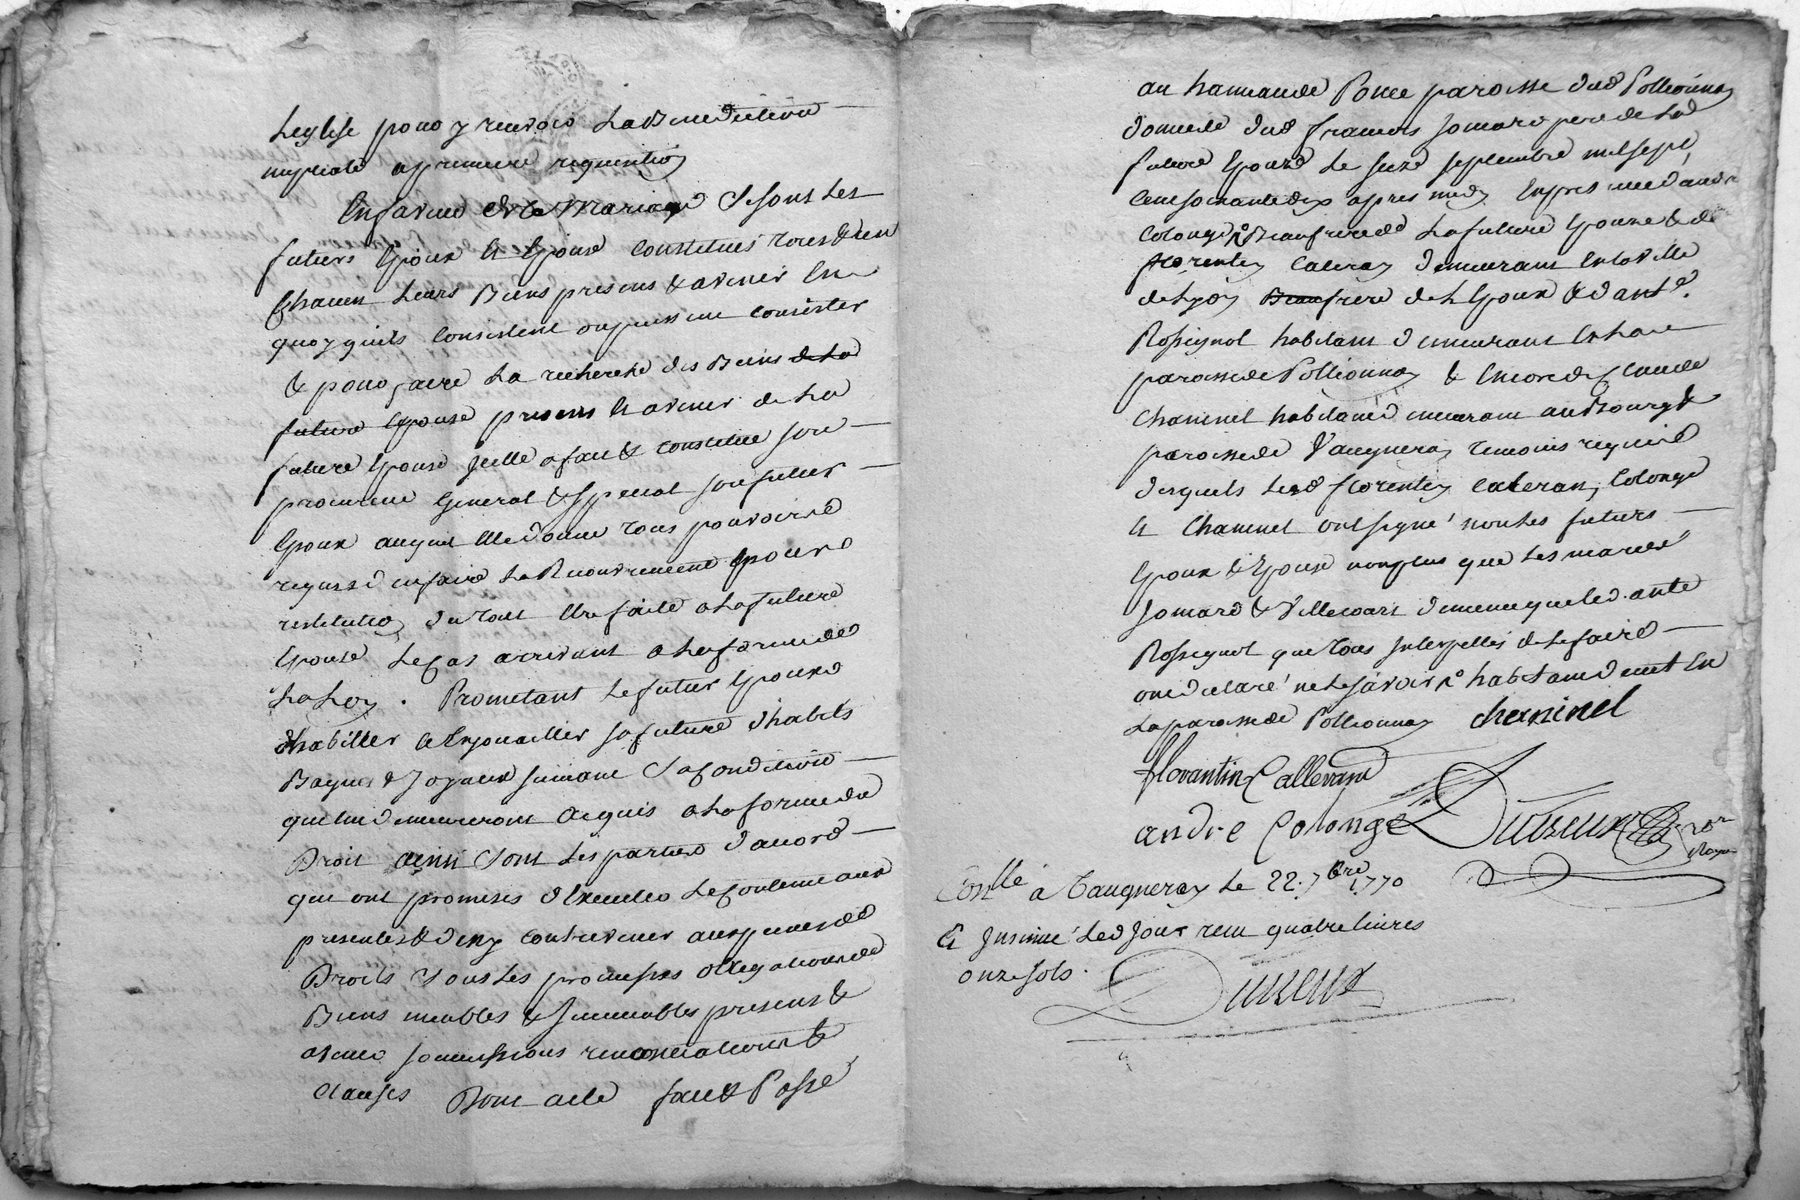 Leglise pour y recevoir La Benediction
nuptiale a premiere requisition
En faveur de Ce Mariage Se sont Les
futurs Epoux et Epouse Constitués tous & un
Chacun Leurs Biens presens & avenir En
quoy quils Consistent ou puissent Consister
& pour faire La recherche des Biens de La
future Epouse presens et avenir de La
future Epouse Jcelle a fait & Constitue son
procureur General & Special son futur
Epoux auquel elle donne tous pouvoirs
requis d'en faire Le Recouvrement pour
restitution du tout Etre faite a La future
Epouse Le Cas arrivant a La forme de
La Loy. Prometant Le futur Epoux
d'habiller et Enjouailler sa future d'habits
Bagues & Joyaux suivant Sa Condition
qui lui demeureront acquis a La forme du
Droit ainsi Sont Les parties d'acord
qui ont promises d'Executer Le Contenu aux
presentes & d'en y Contrevenir aux peines de
Droits Sous Les promesses obligations de
Biens meubles & Jmmeubles presens &
avenir soumissions renonciations &
Clauses Dont acte fait & Passé
au hameau de Ponce paroisse dud Pollionnay
domicile dud francois Jomard pere de Lad
future Epouse Le seize septembre mil sept
Cent soixante dix apres midy En presence d'andré
Colonge Beaufrere de La future Epouse & de
florentin Caleran demeurant En La Ville
de Lyon Beaufrere de L Epoux & d'ante.
Rossignol habitant demeurant En La
paroisse de Pollionnay & Encore de Claude
Chaninel habitant demeurant au Bourg &
paroisse de Vaugneray temoins requis
desquels Lesd florentin Caleran, Colonge
et Chaninel ont signé non Les futurs
Epoux & Epouse non plus que Les mariés
Jomard & Villecourt de meme que Led. ante
Rossignol que tous Interpellés de Le faire
ont declaré ne Le sávoir habitant demt En
La paroisse de Pollionnay Chaninel
florantin Callerand
andre Colonge Dutreux
nore
Royal
Conllé à Vaugneray Le 22. 7bre 1770
Et Jnsinué Led Jour reçu quatre livres
onze sols.
Dutreux